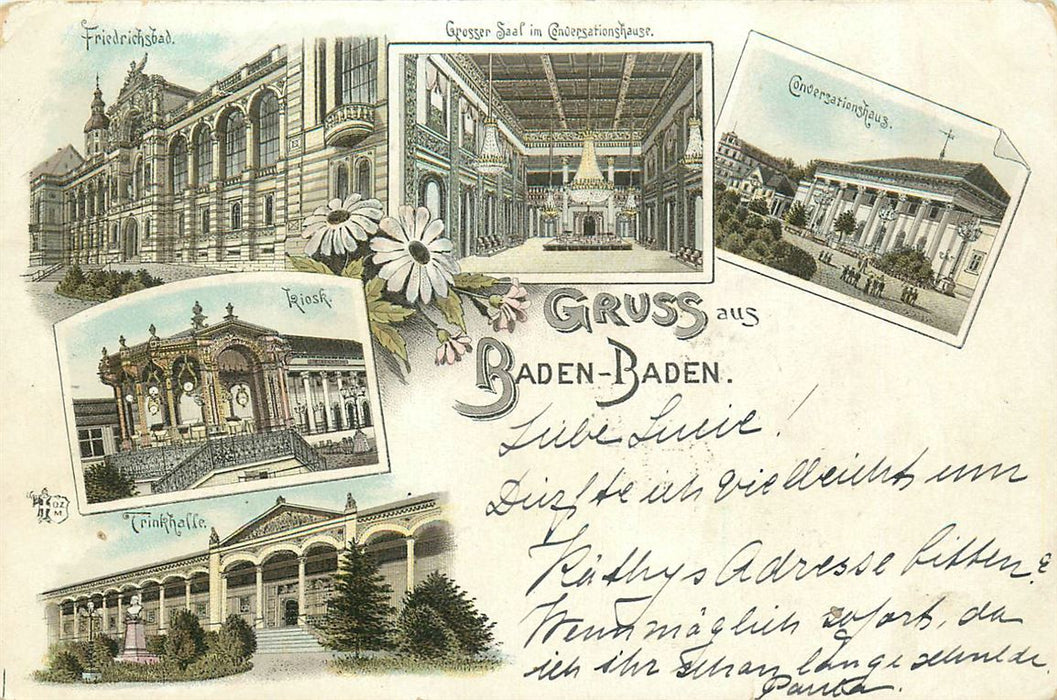 Friedrichsbad.
Grosser Saal im Conversationshause.
Conversationshaus.
Kiosk.
GRUSS aus
BADEN-BADEN.
Trinkhalle.
DZ
M
Liebe Lucie!
Dürfte ich vielleicht um
Käthys Adresse bitten?
Wennmöglich sofort, da
ich ihr schon lange schulde